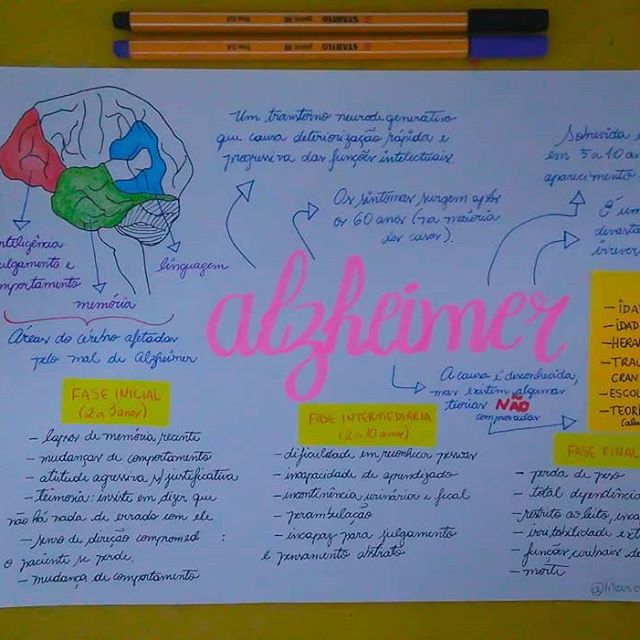 STABILO point 88 fine 0,4
STABILO point 88 fine 0,4
Um transtorno neurodegenerativo
que causa deteriorização rápida e
progressiva das funções intelectuais
Os sintomas surgem após
os 60 anos (na maioria
dos casos).
Sobrevida
em 5 a 10
aparecimento
É um
inteligência
julgamento e
comportamento
memória
linguagem
Áreas do cérebro afetadas
pelo mal de Alzheimer
alzheimer
A causa é desconhecida,
mas existem algumas
teorias NÃO
comprovadas
- IDA
- IDA
- HERAN
- TRAU
CRAN
- ESCOL
- TEORI
FASE INICIAL
(2 a 3 anos)
- lapsos de memória recente
- mudanças de comportamento
- atitude agressiva s/ justificativa
- teimosia: insiste em dizer que
não há nada de errado com ele
- senso de direção compromed :
o paciente se perde
- mudança de comportamento
FASE INTERMEDIÁRIA
(2 a 10 anos)
- dificuldade em reconhecer pessoas
- incapacidade de aprendizado
- incontinência urinária e fecal
- perambulação
- incapaz para julgamento
e pensamento abstrato
FASE FINAL
- perda de peso
- total dependência
- restrito ao leito, inca
- irritabilidade ext
- funções cerebrais de
- morte